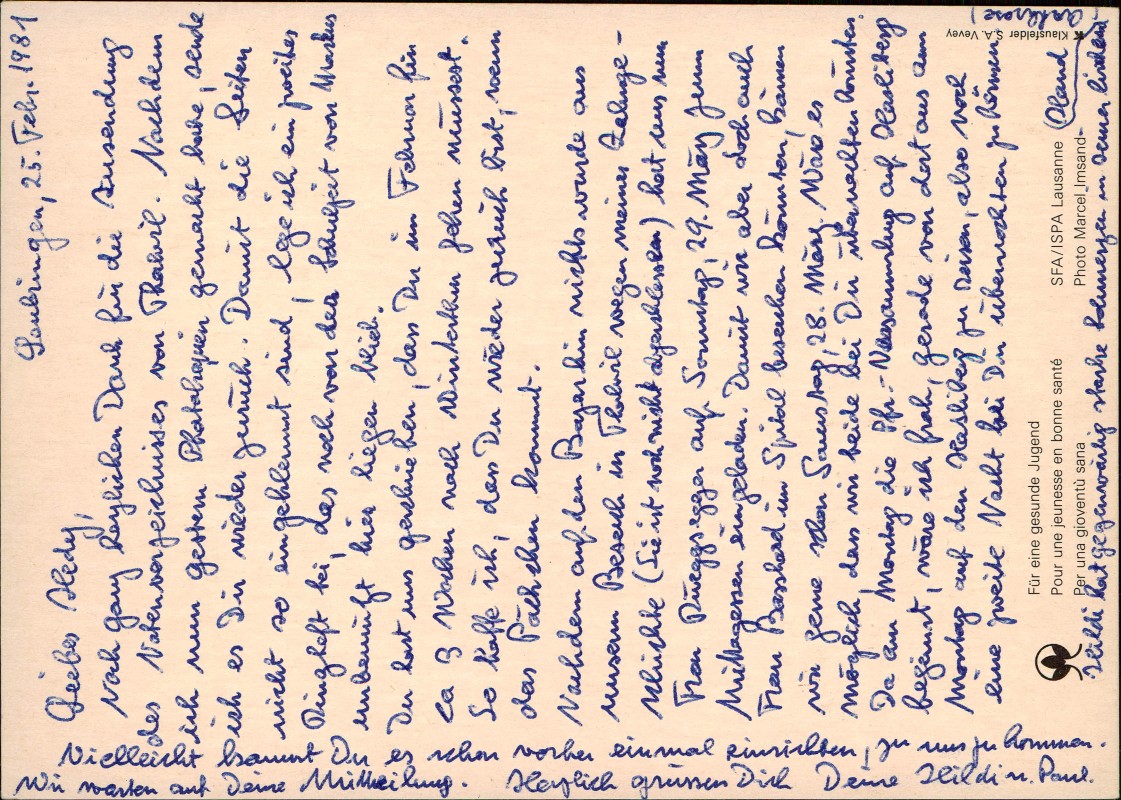 Gachingen, 25. Febr. 1981
Liebes Hedy,
Noch ganz herzlichen Dank für die Zusendung
des Notenverzeichnisses von Thalwil. Nachdem
ich nun gestern Photokopien gemacht habe, sende
ich es Dir wieder zurück. Damit die Seiten
nicht so eingeklemmt sind, lege ich ein zweites
Ringheft bei, das noch von der Schulzeit von Markus
unbenützt hier liegen blieb.
Du hast uns geschrieben, dass Du im Februar für
ca 3 Wochen nach Winterthur gehen müsstest.
So hoffe ich, dass Du wieder zurück bist, wenn
das Päckchen kommt.
Nachdem auf den Bazar hin nichts wurde aus
unserm Besuch in Thalwil wegen meiner Zahnge-
schichte (Sie ist noch nicht abgeschlossen) hat uns nun
Frau Rüeggsegger auf Sonntag, 29. März zum
Mittagessen eingeladen. Damit wir aber doch auch
Frau Bosshard im Spital besuchen könnten, kämen
wir gerne schon Samstag, 28. März. Wäre es
möglich, dass wir beide bei Dir übernachten könnten.
Da am Montag die Pfr.-Versammlung auf Hasliberg
beginnt, wäre ich froh, gerade von dort aus am
Montag auf den Hasliberg zu reisen, also noch
eine zweite Nacht bei Dir übernachten zu können.
Für eine gesunde Jugend
Pour une jeunesse en bonne santé
Per una gioventù sana
SFA/ISPA Lausanne
Photo Marcel Imsand
Klausfelder S.A. Vevey
Hildi hat gegenwärtig starke Schmerzen in einer linken
(Hand
Arthrose)
Vielleicht kannst Du es schon vorher einmal einrichten, zu uns zu kommen.
Wir warten auf Deine Mitteilung. Herzlich grüssen Dich Deine Hildi u. Paul.